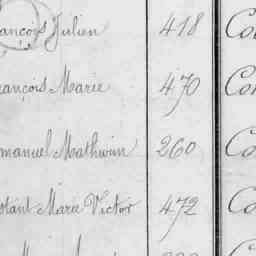 rançois Julien 418 Co
rançois Marie 470 Co
manuel Mathurin 260 Co
nstant Marie Victor 472 Co